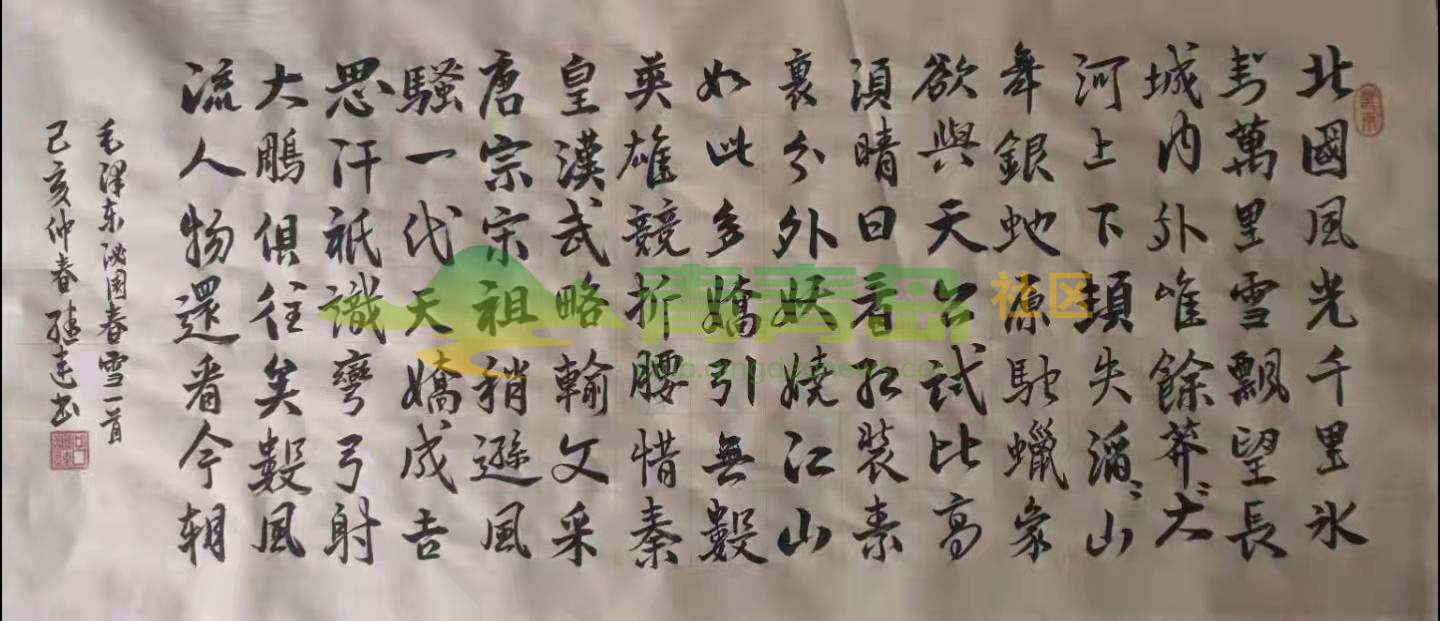 北國風光千里冰
封萬里雪飄望長
城内外唯餘莽々大
河上下頓失滔々山
舞銀蛇原馳蠟象
欲與天公試比高
須晴日看紅裝素
裹分外妖嬈江山
如此多嬌引無數
英雄競折腰惜秦
皇漢武略輸文采
唐宗宋祖稍遜風
騷一代天嬌成吉
思汗祇識彎弓射
大鵰俱往矣數風
流人物還看今朝
毛澤东沁園春雪一首
己亥仲春继书
青青岛社区